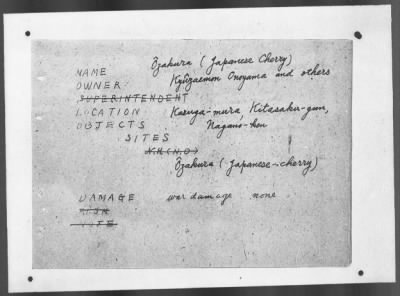 NAME Ozakura (Japanese Cherry)
OWNER Kyūzaemon Onoyama and others
SUPERINTENDENT
LOCATION Kasuga-mura, Kitasaku-gun,
OBJECTS Nagano-ken
SITES
Ozakura (Japanese-cherry)
DAMAGE war damage none